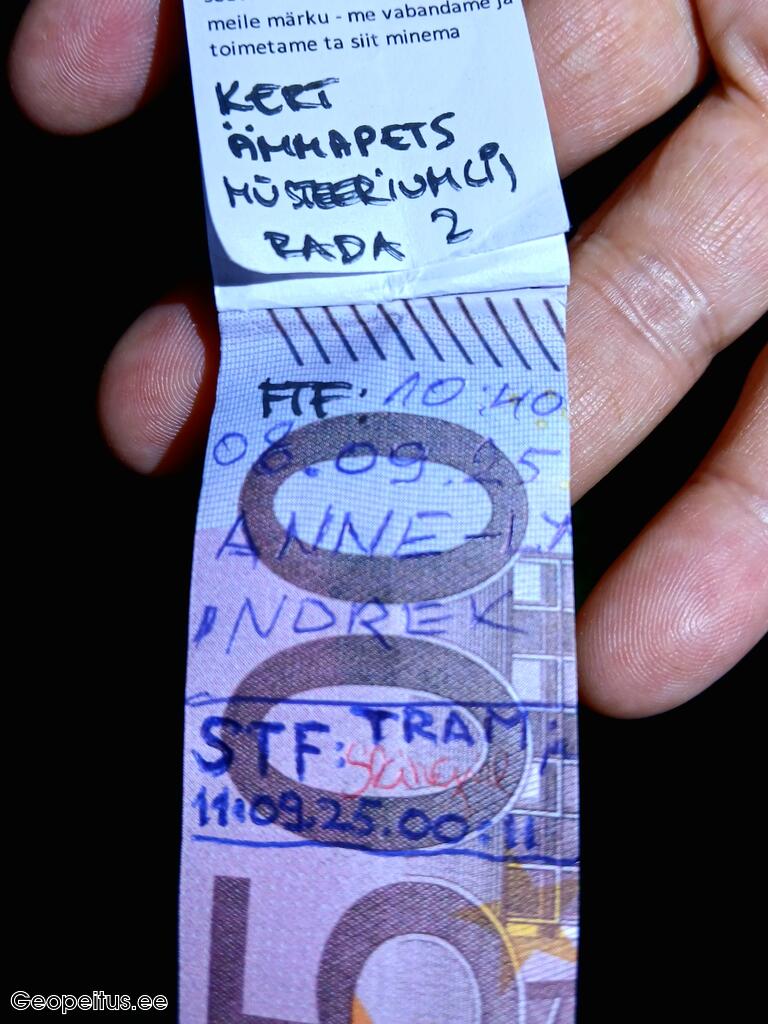 meile märku - me vabandame ja
toimetame ta siit minema
KERT
ÄMMAPETS
MÜSTEERIUM(I)
RADA 2
FTF: 10:40
08.09.25
ANNE-LY
INDREK
STF: TRAM
11:09.25.00:11
500
Geopeitus.ee